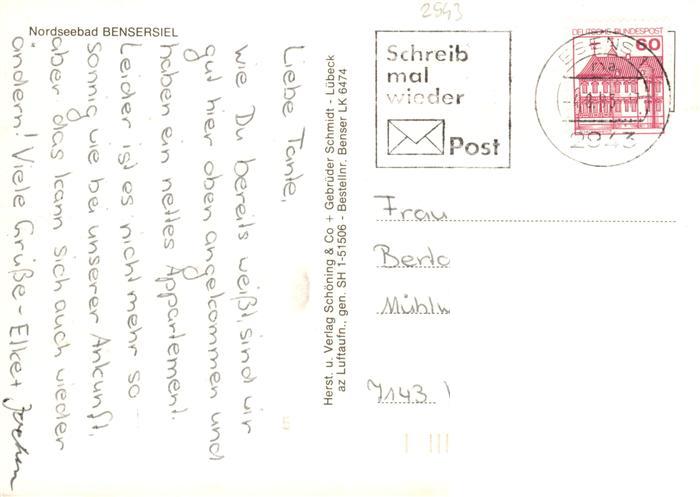 2943
Nordseebad BENSERSIEL
Liebe Tante,
wie Du bereits weißt, sind wir
gut hier oben angekommen und
haben ein nettes Appartement.
Leider ist es nicht mehr so
sonnig wie bei unserer Ankunft,
aber das kann sich auch wieder
ändern! Viele Grüße - Elke + Jochen
Herst. u. Verlag Schöning & Co + Gebrüder Schmidt - Lübeck
az Luftaufn., gen. SH 1-51506 - Bestellnr. Benser LK 6474
Schreib
mal
wieder
Post
DEUTSCHE BUNDESPOST
60
ESENS
2943
Frau
Berta
Mühlw
7143